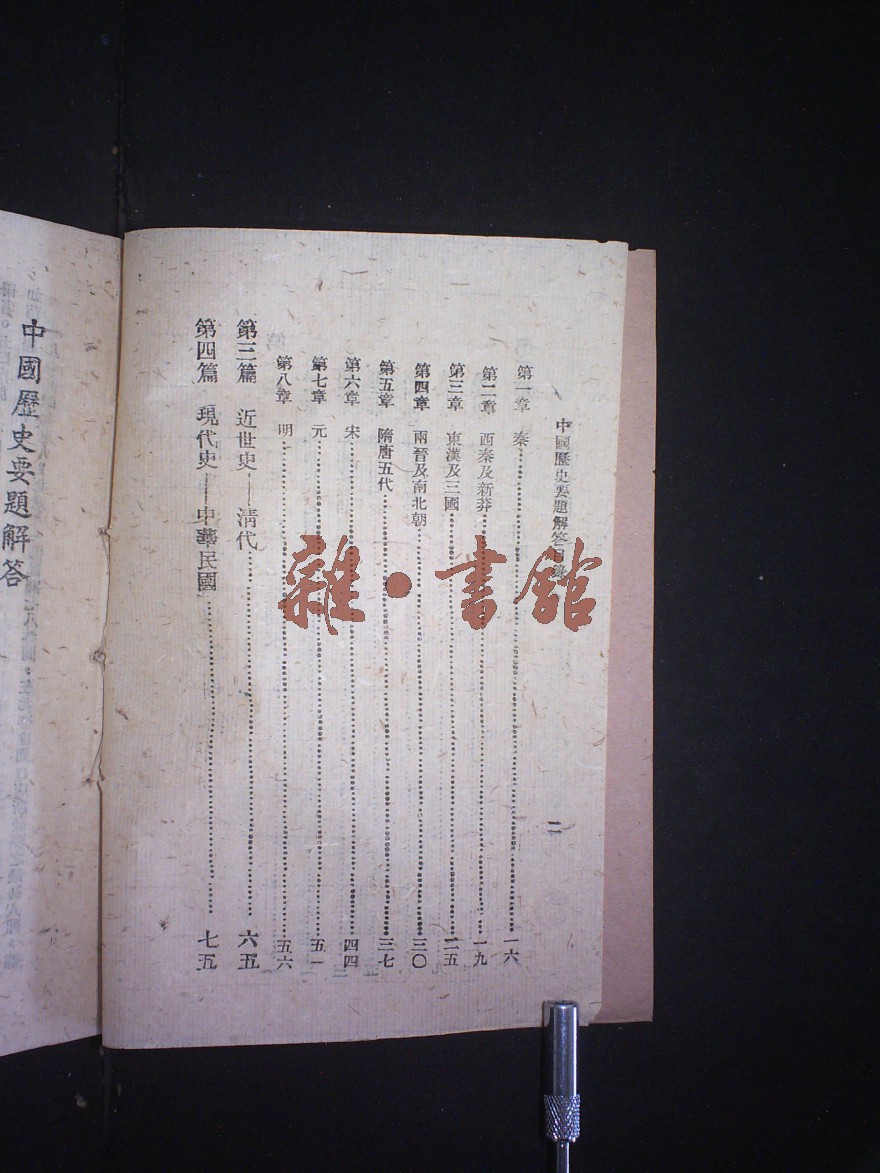 中國歷史要題解答目錄
二
第一章 秦……一六
第二章 西秦及新莽……一九
第三章 東漢及三國……二五
第四章 兩晉及南北朝……三〇
第五章 隋唐五代……三七
第六章 宋……四四
第七章 元……五一
第八章 明……五六
第三篇 近世史——清代……六五
第四篇 現代史——中華民國……七五
中國歷史要題解答
雜·書館